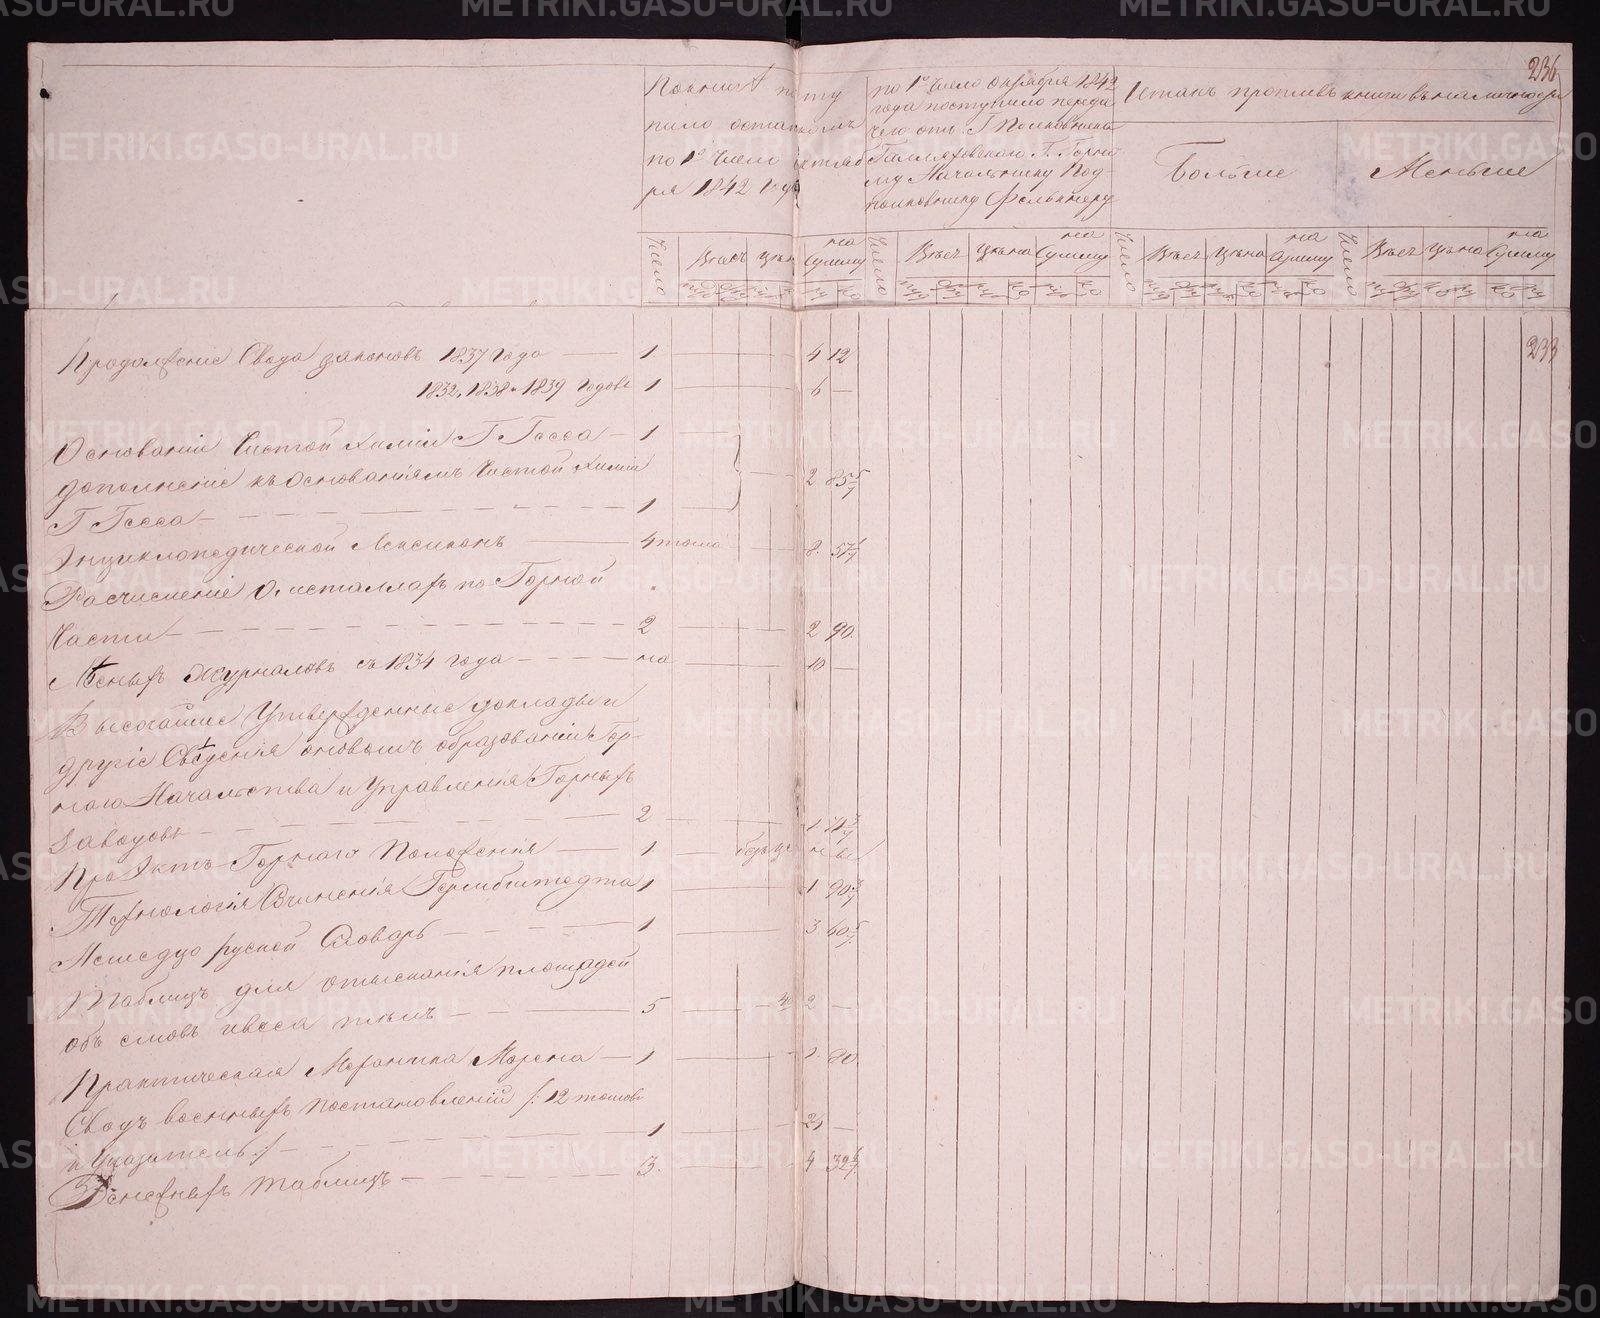 METRIKI.GASO-URAL.RU
236
По книгѣ посту
пило остаткомъ
по 1е Число октяб
ря 1842 года
по 1е Число октября 1842
года поступило переда
чею отъ Г Полковника
Г. Горно
му Начальнику Под
полковнику Фелькнеру
противъ книги въ наличности
Больше
Меньше
Число Вѣсъ цѣна на Сумму
Число Вѣсъ цѣна на Сумму
Число Вѣсъ цѣна на Сумму
Число Вѣсъ цѣна на Сумму
233
Продолженіе Свода законовъ 1837 года 1 4 12
1832, 1838 и 1839 Годовъ 1 6 —
Основаній Чистой Химіи Г Гесса 1
дополненіе къ Основаніямъ Чистой Химіи 2 85 5/7
Г Гесса 1
Энциклопедической Лексиконъ 4 тома 8 57 1/7
Расчисленіе О металлахъ по Горной
Части 2 2 90
Лѣсныхъ Журналовъ съ 1834 года на 10 —
Высочайше Утвержденные доклады и
другіе Свѣденія оновомъ образованіи Гор-
наго Начальства и Управленія Горныхъ
Заводовъ 2 1 71 3/7
Проэктъ Горнаго Положенія 1 безъ цѣны
Технологія Сочиненія Гермбштедта 1 1 90
Немецко руской Словарь 1 3 60 5/7
Таблицъ для отысканія площадей
объемовъ и веса тѣлъ 5 40 2 —
Практическая Механика Морена 1 2 80
Сводъ военныхъ постановленій /: 12 томовъ
и Указатель :/ 1 21 —
Денежныхъ таблицъ 3 4 32 6/7